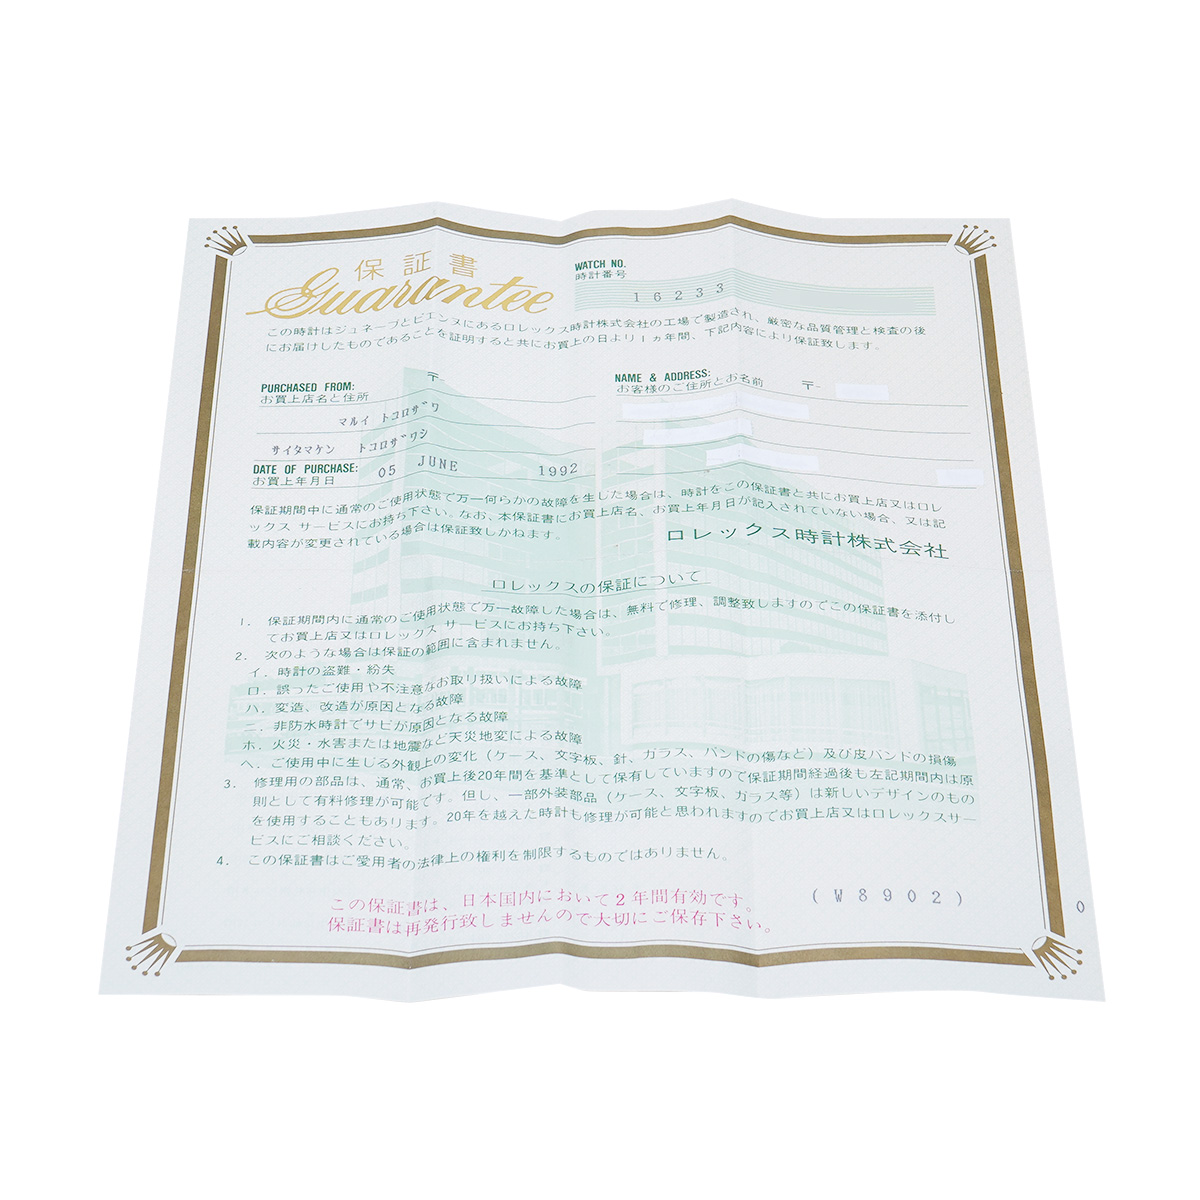 保証書
Guarantee
WATCH NO.
時計番号
16233
この時計はジュネーブとビエンヌにあるロレックス時計株式会社の工場で製造され、厳密な品質管理と検査の後
にお届けしたものであることを証明すると共にお買上の日より1ヵ年間、下記内容により保証致します。
PURCHASED FROM: 〒-
お買上店名と住所
マルイ トコロザワ
サイタマケン トコロザワシ
DATE OF PURCHASE: 05 JUNE 1992
お買上年月日
NAME & ADDRESS:
お客様のご住所とお名前 〒-
保証期間中に通常のご使用状態で万一何らかの故障を生じた場合は、時計をこの保証書と共にお買上店又はロレ
ックス サービスにお持ち下さい。なお、本保証書にお買上店名、お買上年月日が記入されていない場合、又は記
載内容が変更されている場合は保証致しかねます。
ロレックス時計株式会社
ロレックスの保証について
1. 保証期間内に通常のご使用状態で万一故障した場合は、無料で修理、調整致しますのでこの保証書を添付し
てお買上店又はロレックス サービスにお持ち下さい。
2. 次のような場合は保証の範囲に含まれません。
イ. 時計の盗難・紛失
ロ. 誤ったご使用や不注意なお取り扱いによる故障
ハ. 変造、改造が原因となる故障
ニ. 非防水時計でサビが原因となる故障
ホ. 火災・水害または地震など天災地変による故障
ヘ. ご使用中に生じる外観上の変化(ケース、文字板、針、ガラス、バンドの傷など)及び皮バンドの損傷
3. 修理用の部品は、通常、お買上後20年間を基準として保有していますので保証期間経過後も左記期間内は原
則として有料修理が可能です。但し、一部外装部品(ケース、文字板、ガラス等)は新しいデザインのもの
を使用することもあります。20年を越えた時計も修理が可能と思われますのでお買上店又はロレックスサー
ビスにご相談ください。
4. この保証書はご愛用者の法律上の権利を制限するものではありません。
この保証書は、日本国内において2年間有効です。
保証書は再発行致しませんので大切にご保存下さい。
(W8902)
0